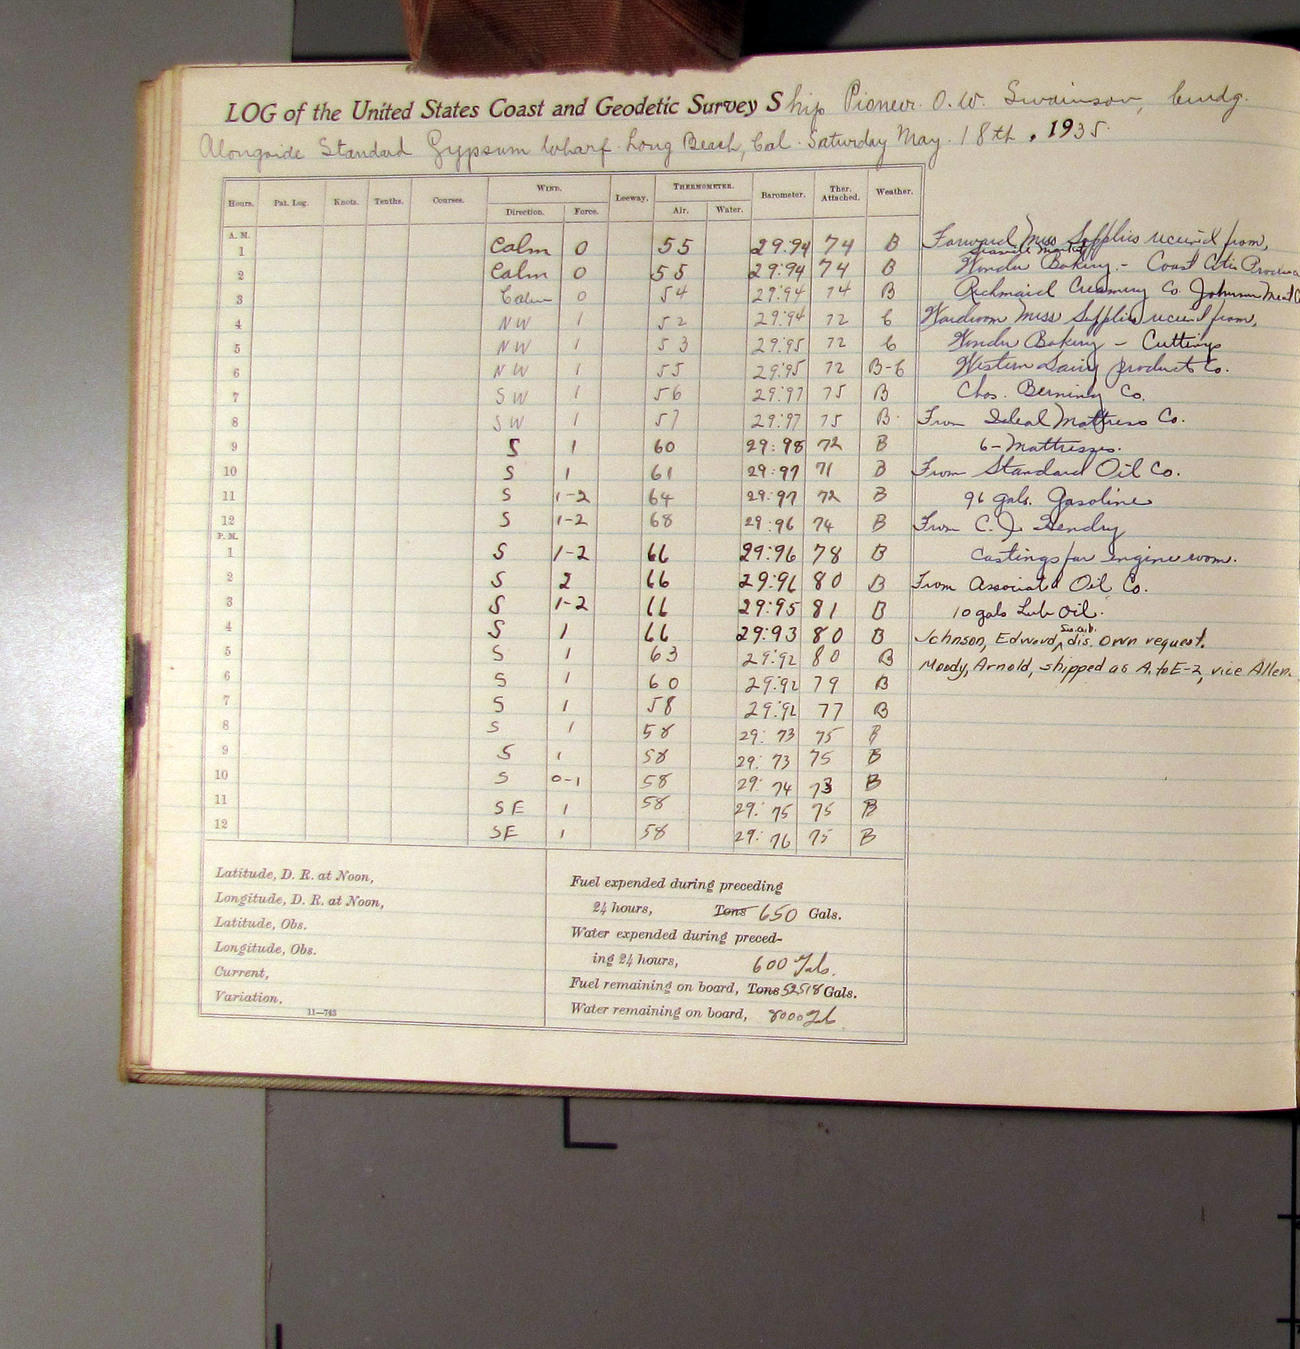 LOG of the United States Coast and Geodetic Survey Ship Pioneer. O. W. Swainson, Cmdg.
Alongside Standard Gypsum Wharf. Long Beach, Cal. Saturday May. 18th, 1935.
Hours. Pat. Log. Knots. Tenths. Courses. WIND. Leeway. THERMOMETER. Barometer. Ther. Attached. Weather.
Direction. Force. Air. Water.
A. M.
1 Calm 0 55 29:94 74 B Forward Mess Supplies received from,
2 Calm 0 55 29:94 74 B Wonder Bakery. - Coast Cities Produce
3 Calm 0 54 29:94 74 B Richmaid Creamery Co. Johnson Meat Co
4 NW 1 52 29:94 72 C Wardroom Mess Supplies received from,
5 NW 1 53 29:95 72 C Wonder Bakery - Cuttings
6 NW 1 55 29:95 72 B-C Western Dairy products Co.
7 SW 1 56 29:97 75 B Chas. Berning Co.
8 SW 1 57 29:97 75 B. From Ideal Mattress Co.
9 S 1 60 29:98 72 B 6 - Mattresses.
10 S 1 61 29:97 71 B From Standard Oil Co.
11 S 1-2 64 29:97 72 B 96 gals. Gasoline
12 S 1-2 68 29:96 74 B From C. J. Hendry
P. M.
1 S 1-2 66 29:96 78 B Castings for engine room.
2 S 2 66 29:96 80 B From Associated Oil Co.
3 S 1-2 66 29:95 81 B 10 gals Lub Oil.
4 S 1 66 29:93 80 B Johnson, Edward, dis. own request.
5 S 1 63 29:92 80 B Moody, Arnold, shipped as A. to E-2, vice Allen.
6 S 1 60 29:92 79 B
7 S 1 58 29:92 77 B
8 S 1 58 29:73 75 B
9 S 1 58 29:73 75 B
10 S 0-1 58 29:74 73 B
11 SE 1 58 29:75 75 B
12 SE 1 58 29:76 75 B
Latitude, D. R. at Noon,
Longitude, D. R. at Noon,
Latitude, Obs.
Longitude, Obs.
Current,
Variation,
11—743
Fuel expended during preceding
24 hours, Tons 650 Gals.
Water expended during preced-
ing 24 hours, 600 Gals.
Fuel remaining on board, Tons 52518 Gals.
Water remaining on board, 8000 Gls